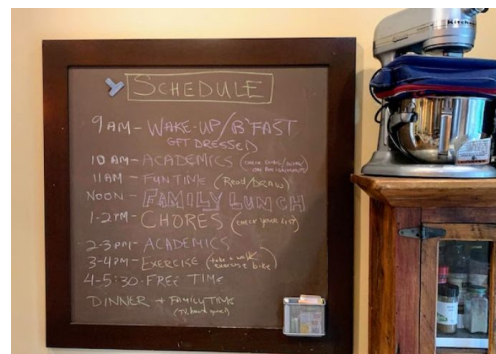 SCHEDULE
9 AM - WAKE-UP/B'FAST
GET DRESSED
10 AM - ACADEMICS (
11 AM - FUN TIME (READ/DRAW)
NOON - FAMILY LUNCH
1-2 PM - CHORES (CHECK YOUR LIST)
2-3 PM - ACADEMICS
3-4 PM - EXERCISE (take a walk,
exercise bike)
4-5:30 - FREE TIME
DINNER + FAMILY TIME
(TV, board game)
KitchenAid